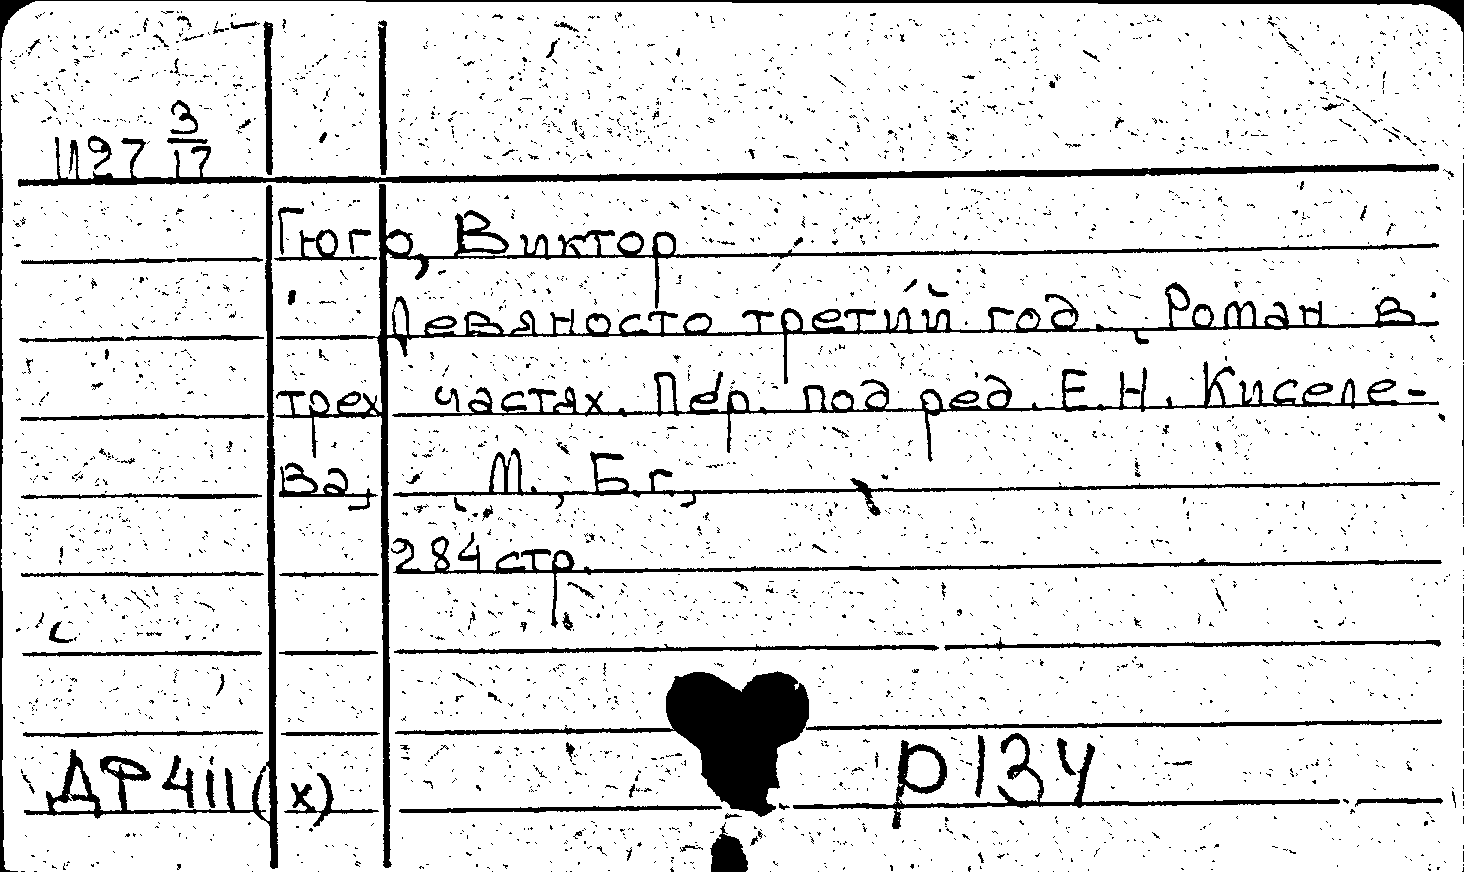 И27 3/17
Гюго, Виктор
Девяносто третий год. Роман в
трех частях. Пер. под ред. Е.Н. Киселе-
ва, М., Б.г.,
284 стр.
ДР411(х) р134